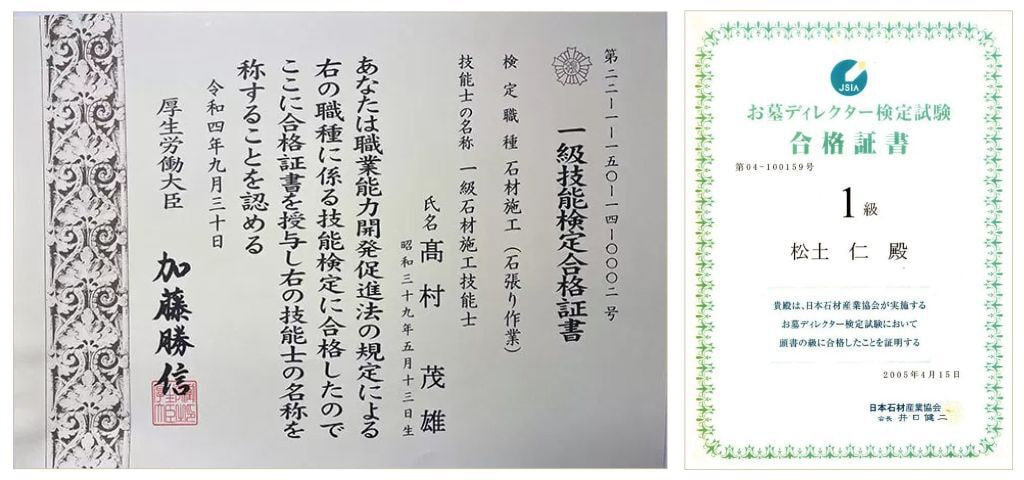 第二二-一-一五〇-一四-〇〇〇二号
一級技能検定合格証書
検定職種 石材施工(石張り作業)
技能士の名称 一級石材施工技能士
氏名 髙村 茂雄
昭和三十九年五月十三日生
あなたは職業能力開発促進法の規定による
右の職種に係る技能検定に合格したので
ここに合格証書を授与し右の技能士の名称を
称することを認める
令和四年九月三十日
厚生労働大臣 加藤勝信
JSIA
お墓ディレクター検定試験
合格証書
第04-100159号
1級
松土 仁 殿
貴殿は、日本石材産業協会が実施する
お墓ディレクター検定試験において
頭書の級に合格したことを証明する
2005年4月15日
日本石材産業協会
会長 井口健二